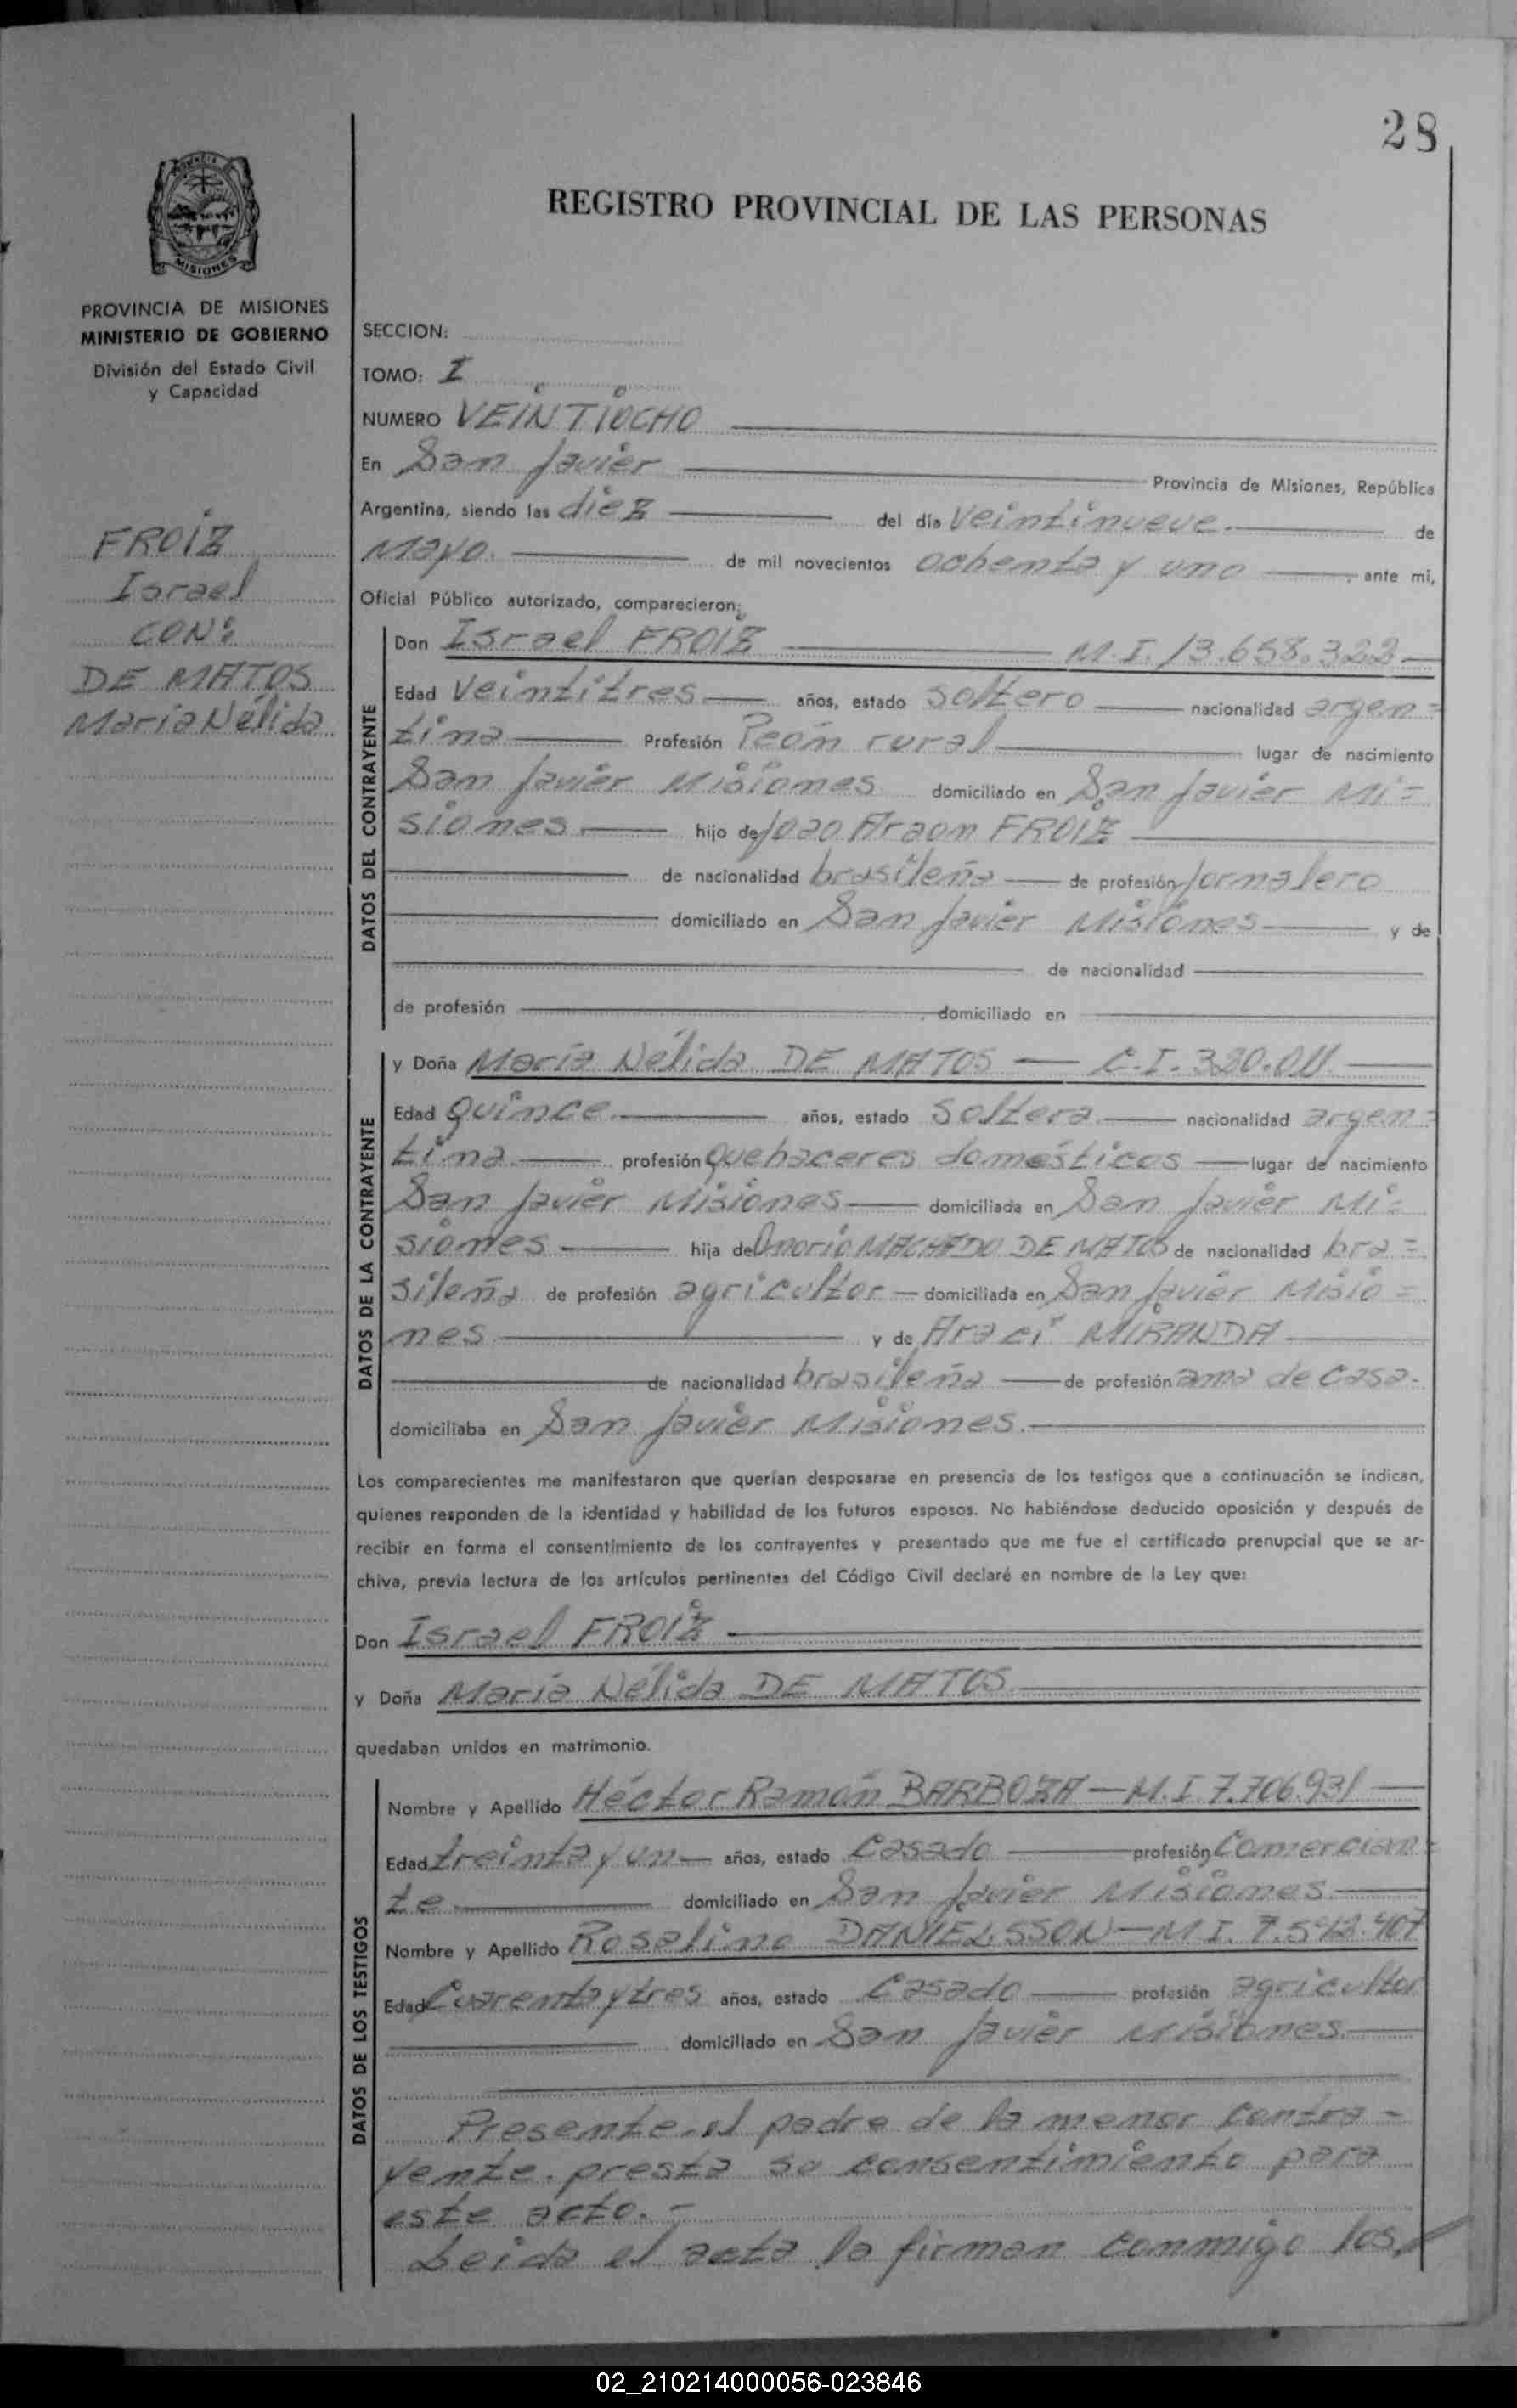 28
REGISTRO PROVINCIAL DE LAS PERSONAS
PROVINCIA
MISIONES
PROVINCIA DE MISIONES
MINISTERIO DE GOBIERNO
División del Estado Civil
y Capacidad
FROIZ
Israel
CON:
DE MATOS
María Nélida
SECCION:
TOMO: I
NUMERO VEINTIOCHO
En San Javier Provincia de Misiones, República
Argentina, siendo las diez del día veintinueve de
Mayo. de mil novecientos ochenta y uno , ante mi,
Oficial Público autorizado, comparecieron:
DATOS DEL CONTRAYENTE
Don Israel FROIZ M.I. 13.658.322
Edad veintitres años, estado soltero nacionalidad argen=
tina Profesión Peón rural lugar de nacimiento
San Javier Misiones domiciliado en San Javier Mi=
siones hijo de Joao Araon FROIZ
de nacionalidad brasileña de profesión Jornalero
domiciliado en San Javier Misiones y de
de nacionalidad
de profesión domiciliado en
DATOS DE LA CONTRAYENTE
y Doña María Nélida DE MATOS — C.I. 330.011
Edad quince años, estado soltera nacionalidad argen=
tina profesión quehaceres domésticos lugar de nacimiento
San Javier Misiones domiciliada en San Javier Mi=
siones hija de Onorio MACHADO DE MATOS de nacionalidad bra=
sileña de profesión agricultor — domiciliada en San Javier Misio=
nes y de Araci MIRANDA
de nacionalidad brasileña de profesión ama de casa.
domiciliaba en San Javier Misiones.
Los comparecientes me manifestaron que querían desposarse en presencia de los testigos que a continuación se indican,
quienes responden de la identidad y habilidad de los futuros esposos. No habiéndose deducido oposición y después de
recibir en forma el consentimiento de los contrayentes y presentado que me fue el certificado prenupcial que se ar-
chiva, previa lectura de los artículos pertinentes del Código Civil declaré en nombre de la Ley que:
Don Israel FROIZ
y Doña María Nélida DE MATOS
quedaban unidos en matrimonio.
DATOS DE LOS TESTIGOS
Nombre y Apellido Héctor Ramón BARBOZA — M.I 7.706.931
Edad treinta y un años, estado Casado profesión Comercian=
te domiciliado en San Javier Misiones
Nombre y Apellido Roselino DANIELSSON — M.I. 7.542.407
Edad Cuarenta y tres años, estado Casado profesión agricultor
domiciliado en San Javier Misiones.
Presente el padre de la menor contra-
yente. presta su consentimiento para
este acto.-
Leida el acta la firman conmigo los
02_210214000056-023846